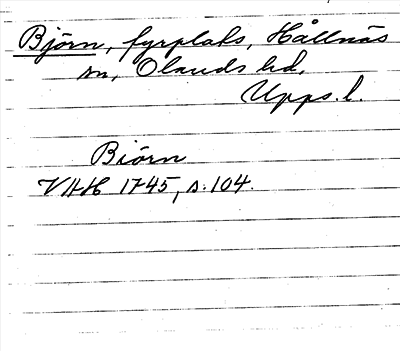 Björn, fyrplats, Hållnäs
sn, Olands hd,
Upps. l.
Biörn
VAH 1745, s. 104.